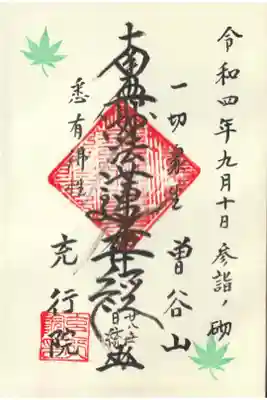 令和四年九月十日 参詣ノ砌
一切衆生 曽谷山
南無妙法蓮華経
悉有佛性 充行院